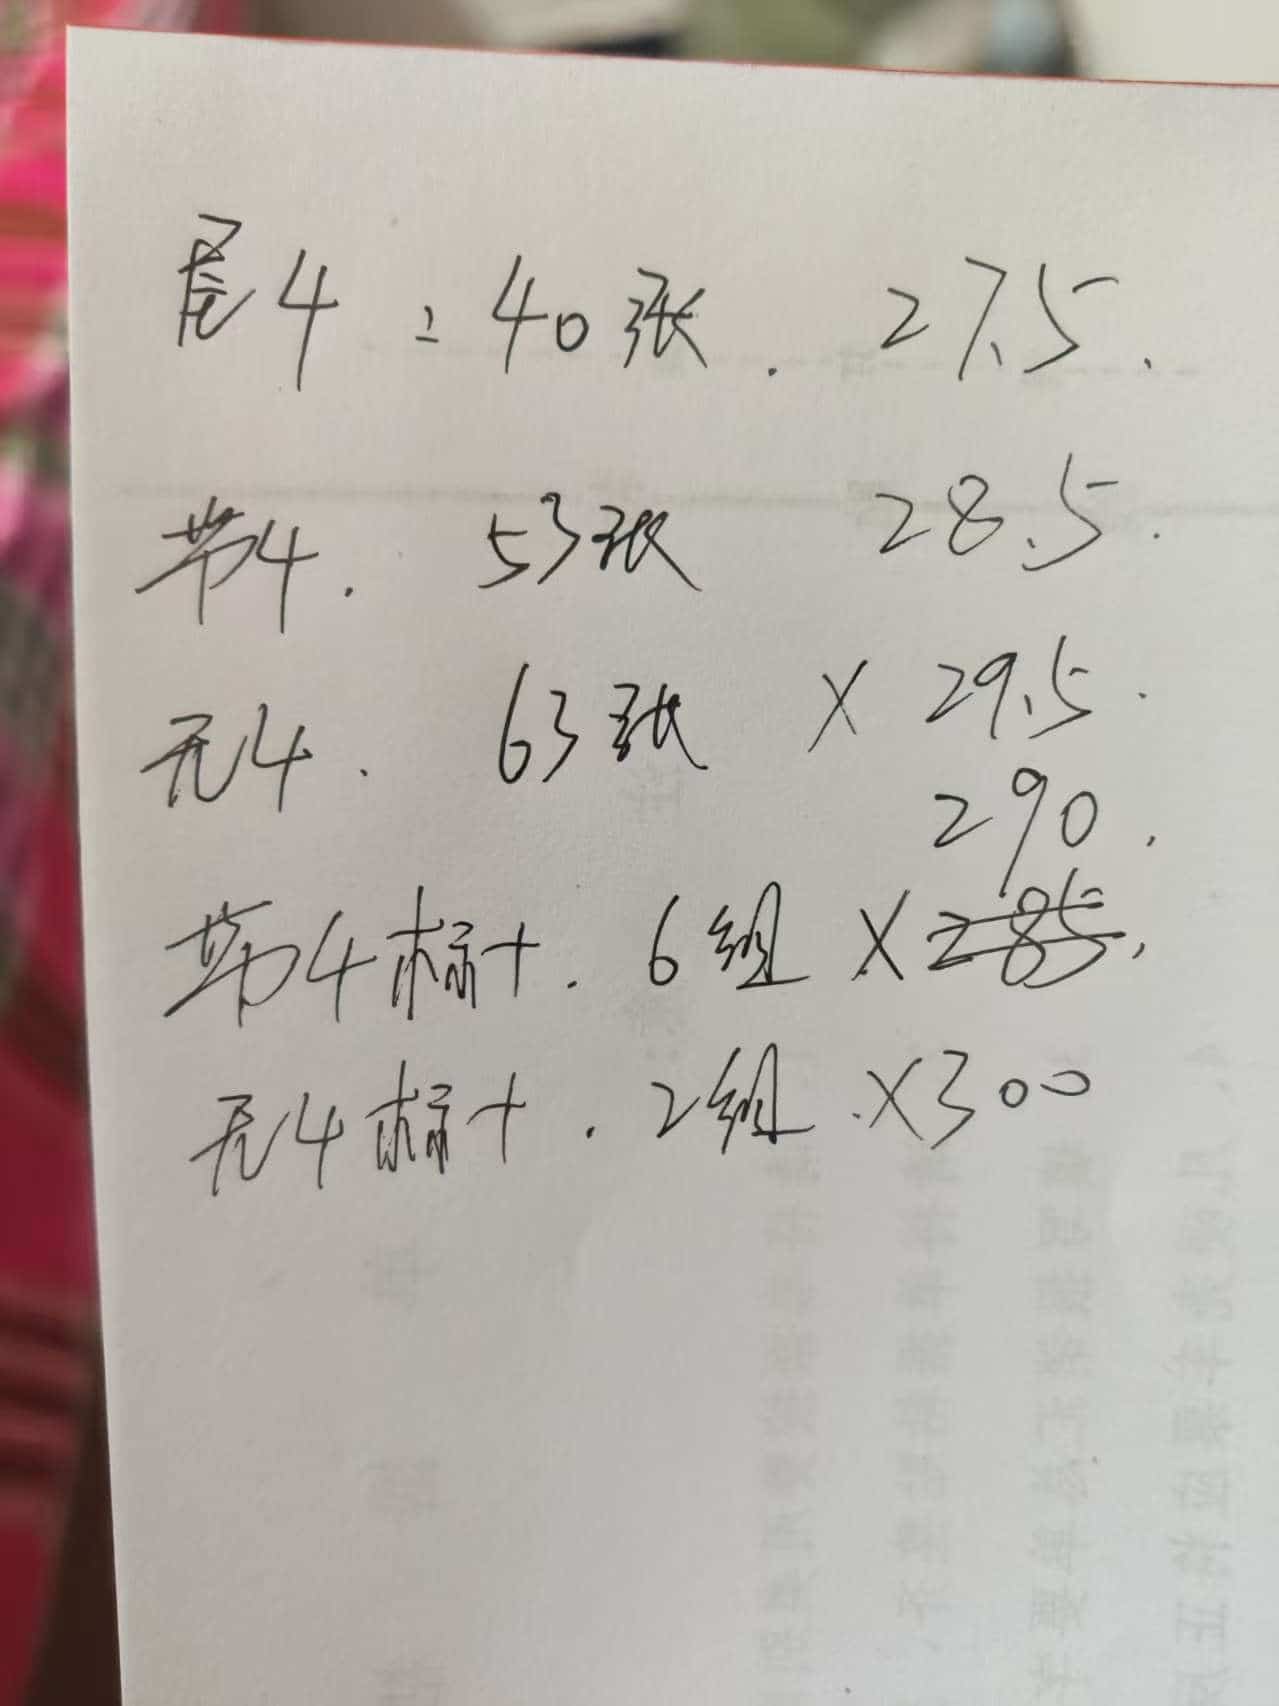 尾4：40张. 27.5.
带4. 53张 28.5.
无4. 63张 × 29.5.
290.
带4标十. 6组 ×285.
无4标十. 2组.×300